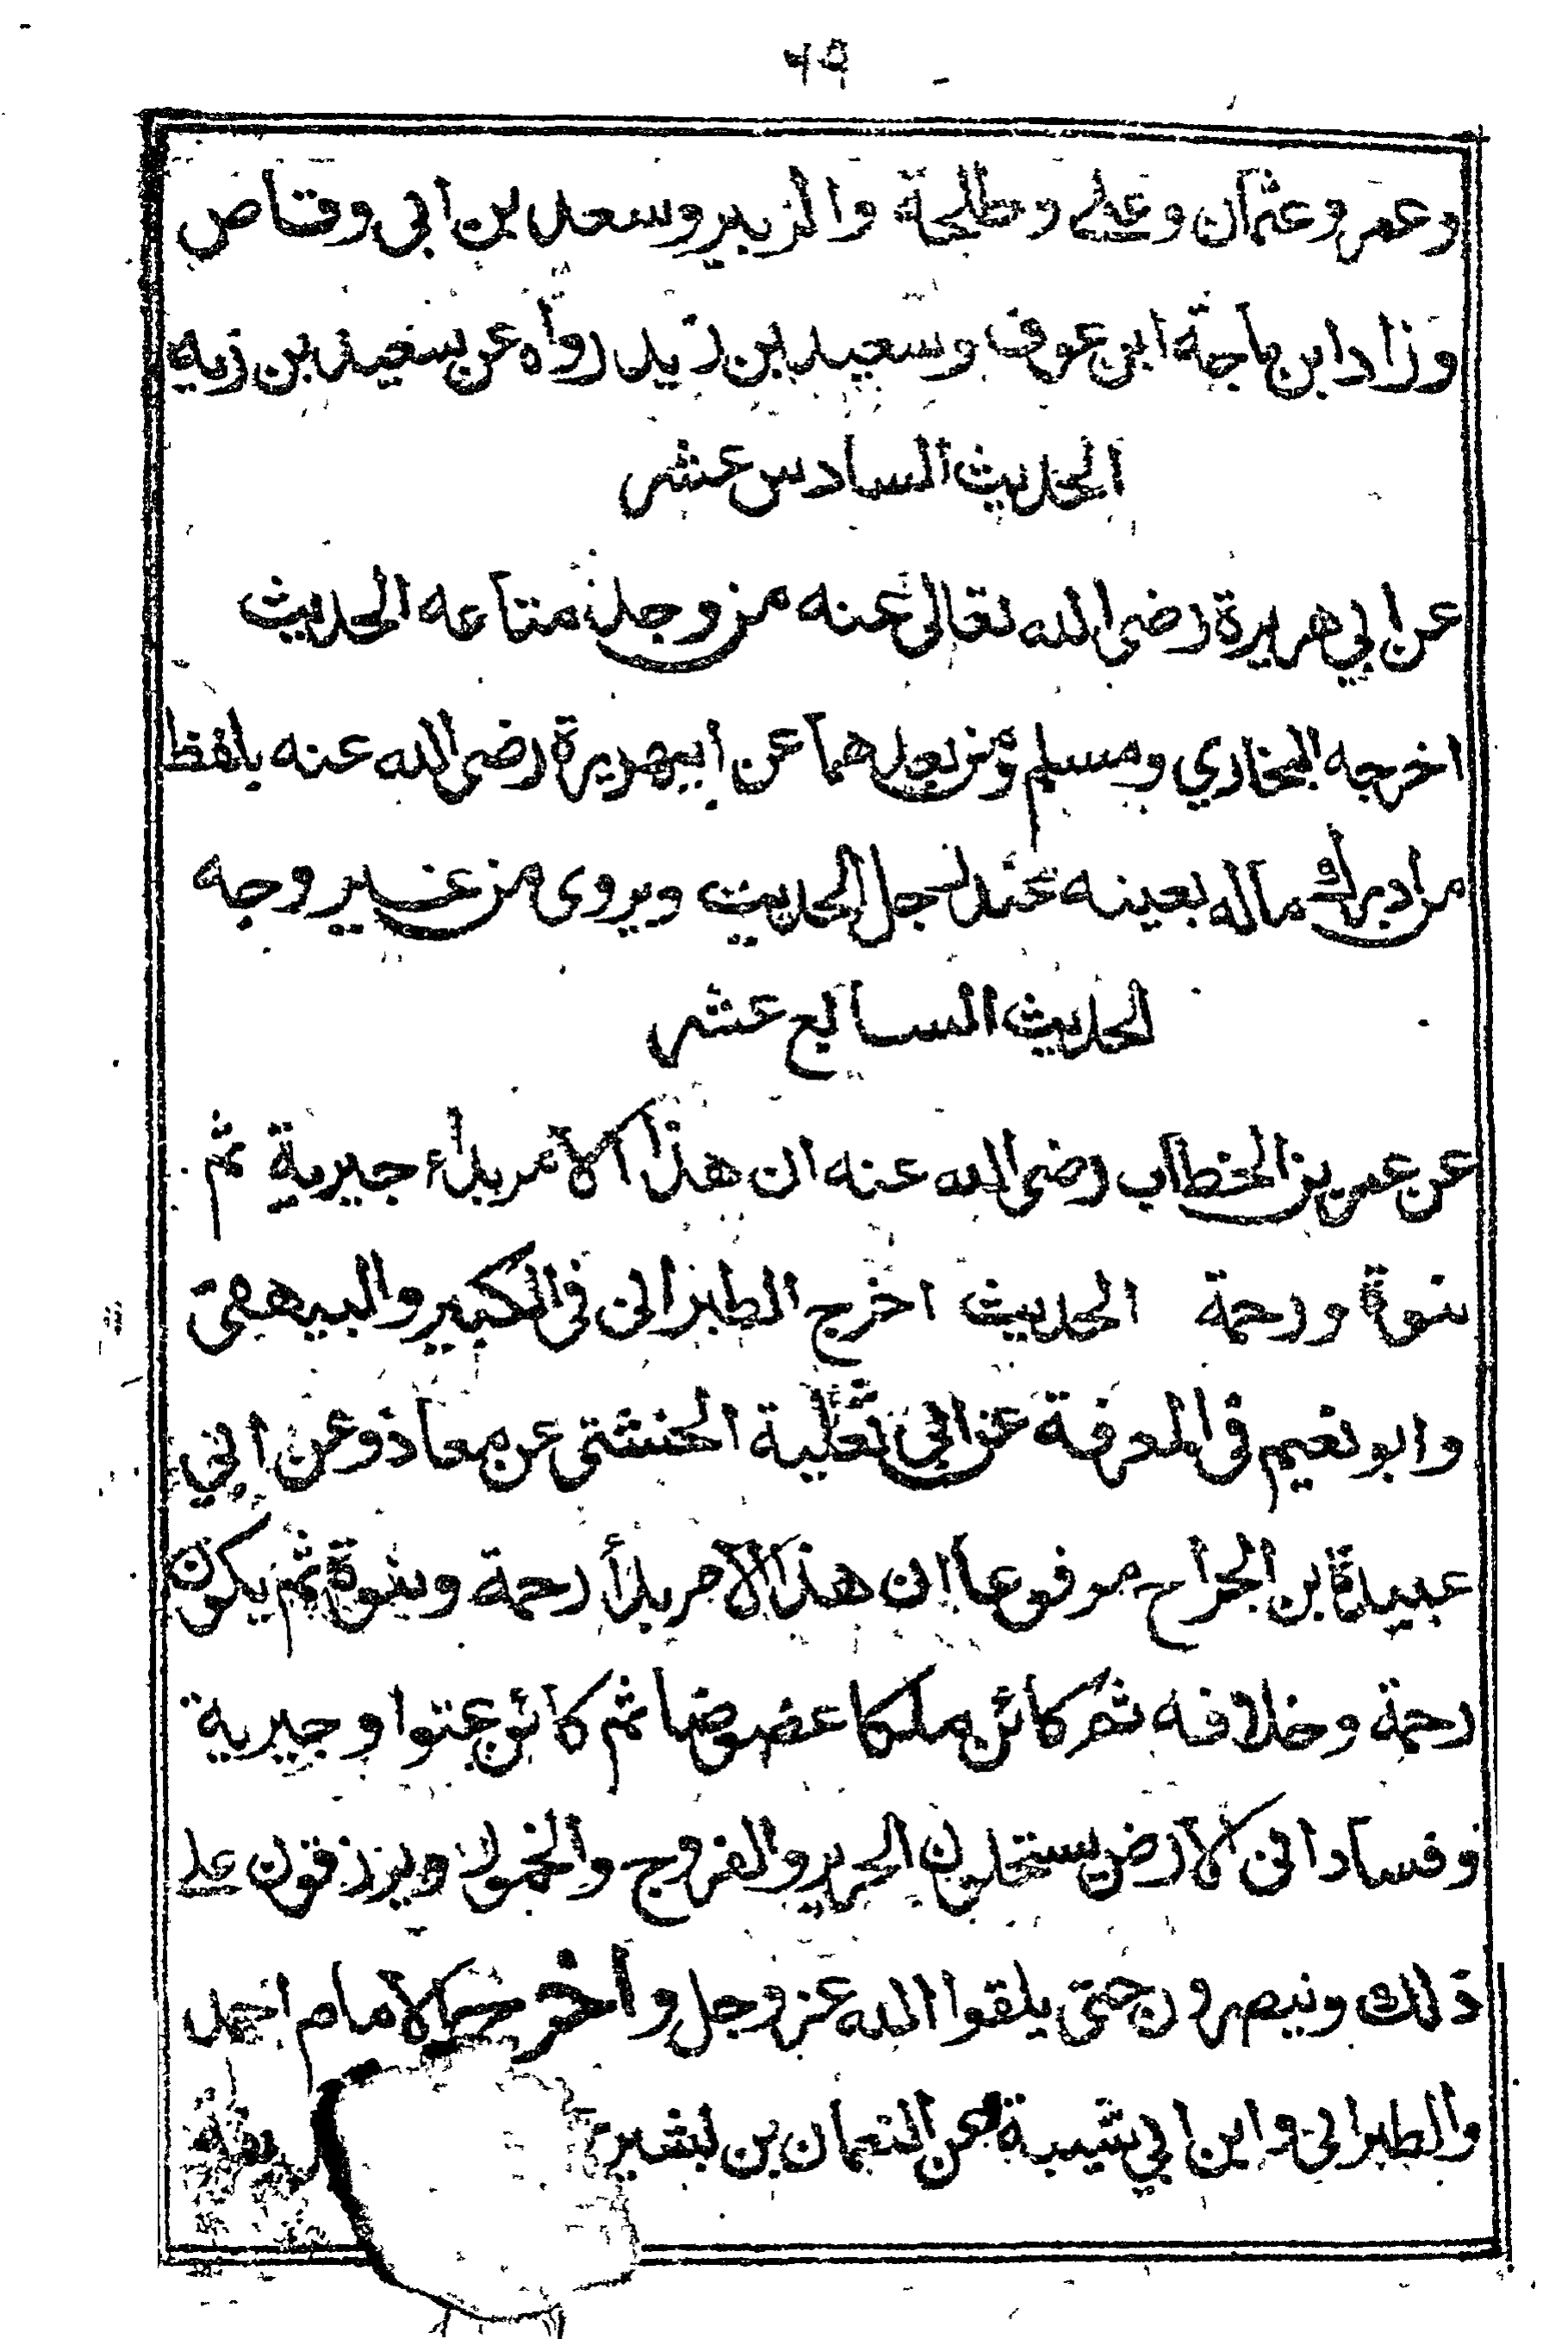 ٤٩
وعمر وعثمان وعلى وطلحة والزبير وسعد بن ابى وقاص
وزاد ابن ماجة ابن عوف وسعيد ابن زيد رواه عن سعيد بن زيد
الحديث السادس عشر
عن ابي هريرة رضى الله تعالى عنه من وجد متاعه الحديث
اخرجه البخاري ومسلم ومن بعدهما عن ابيهريرة رضى الله عنه بلفظ
من ادرك ماله بعينه عند رجل الحديث ويروى من غير وجه
الحديث السابع عشر
عن عمر بن الخطاب رضى الله عنه ان هذا الامر بداء جبرية ثم
نبوة ورحمة الحديث اخرج الطبرانى فى الكبير والبيهقى
وابو نعيم فى المعرفة عن ابى ثعلبة الخشنى عن معاذ وعن ابي
عبيدة بن الجراح مرفوعا ان هذا الامر بدأ رحمة ونبوة ثم يكون
رحمة وخلافه ثم كائن ملكا عضوضا ثم كائن عتوا وجبرية
وفسادا فى الارض يستحلون الحرير والفروج والخمور ويرزقون على
ذلك وينصرون حتى يلقوا الله عز وجل واخرج الامام احمد
والطبرانى وابن ابي شيبة عن النعمان بن بشير